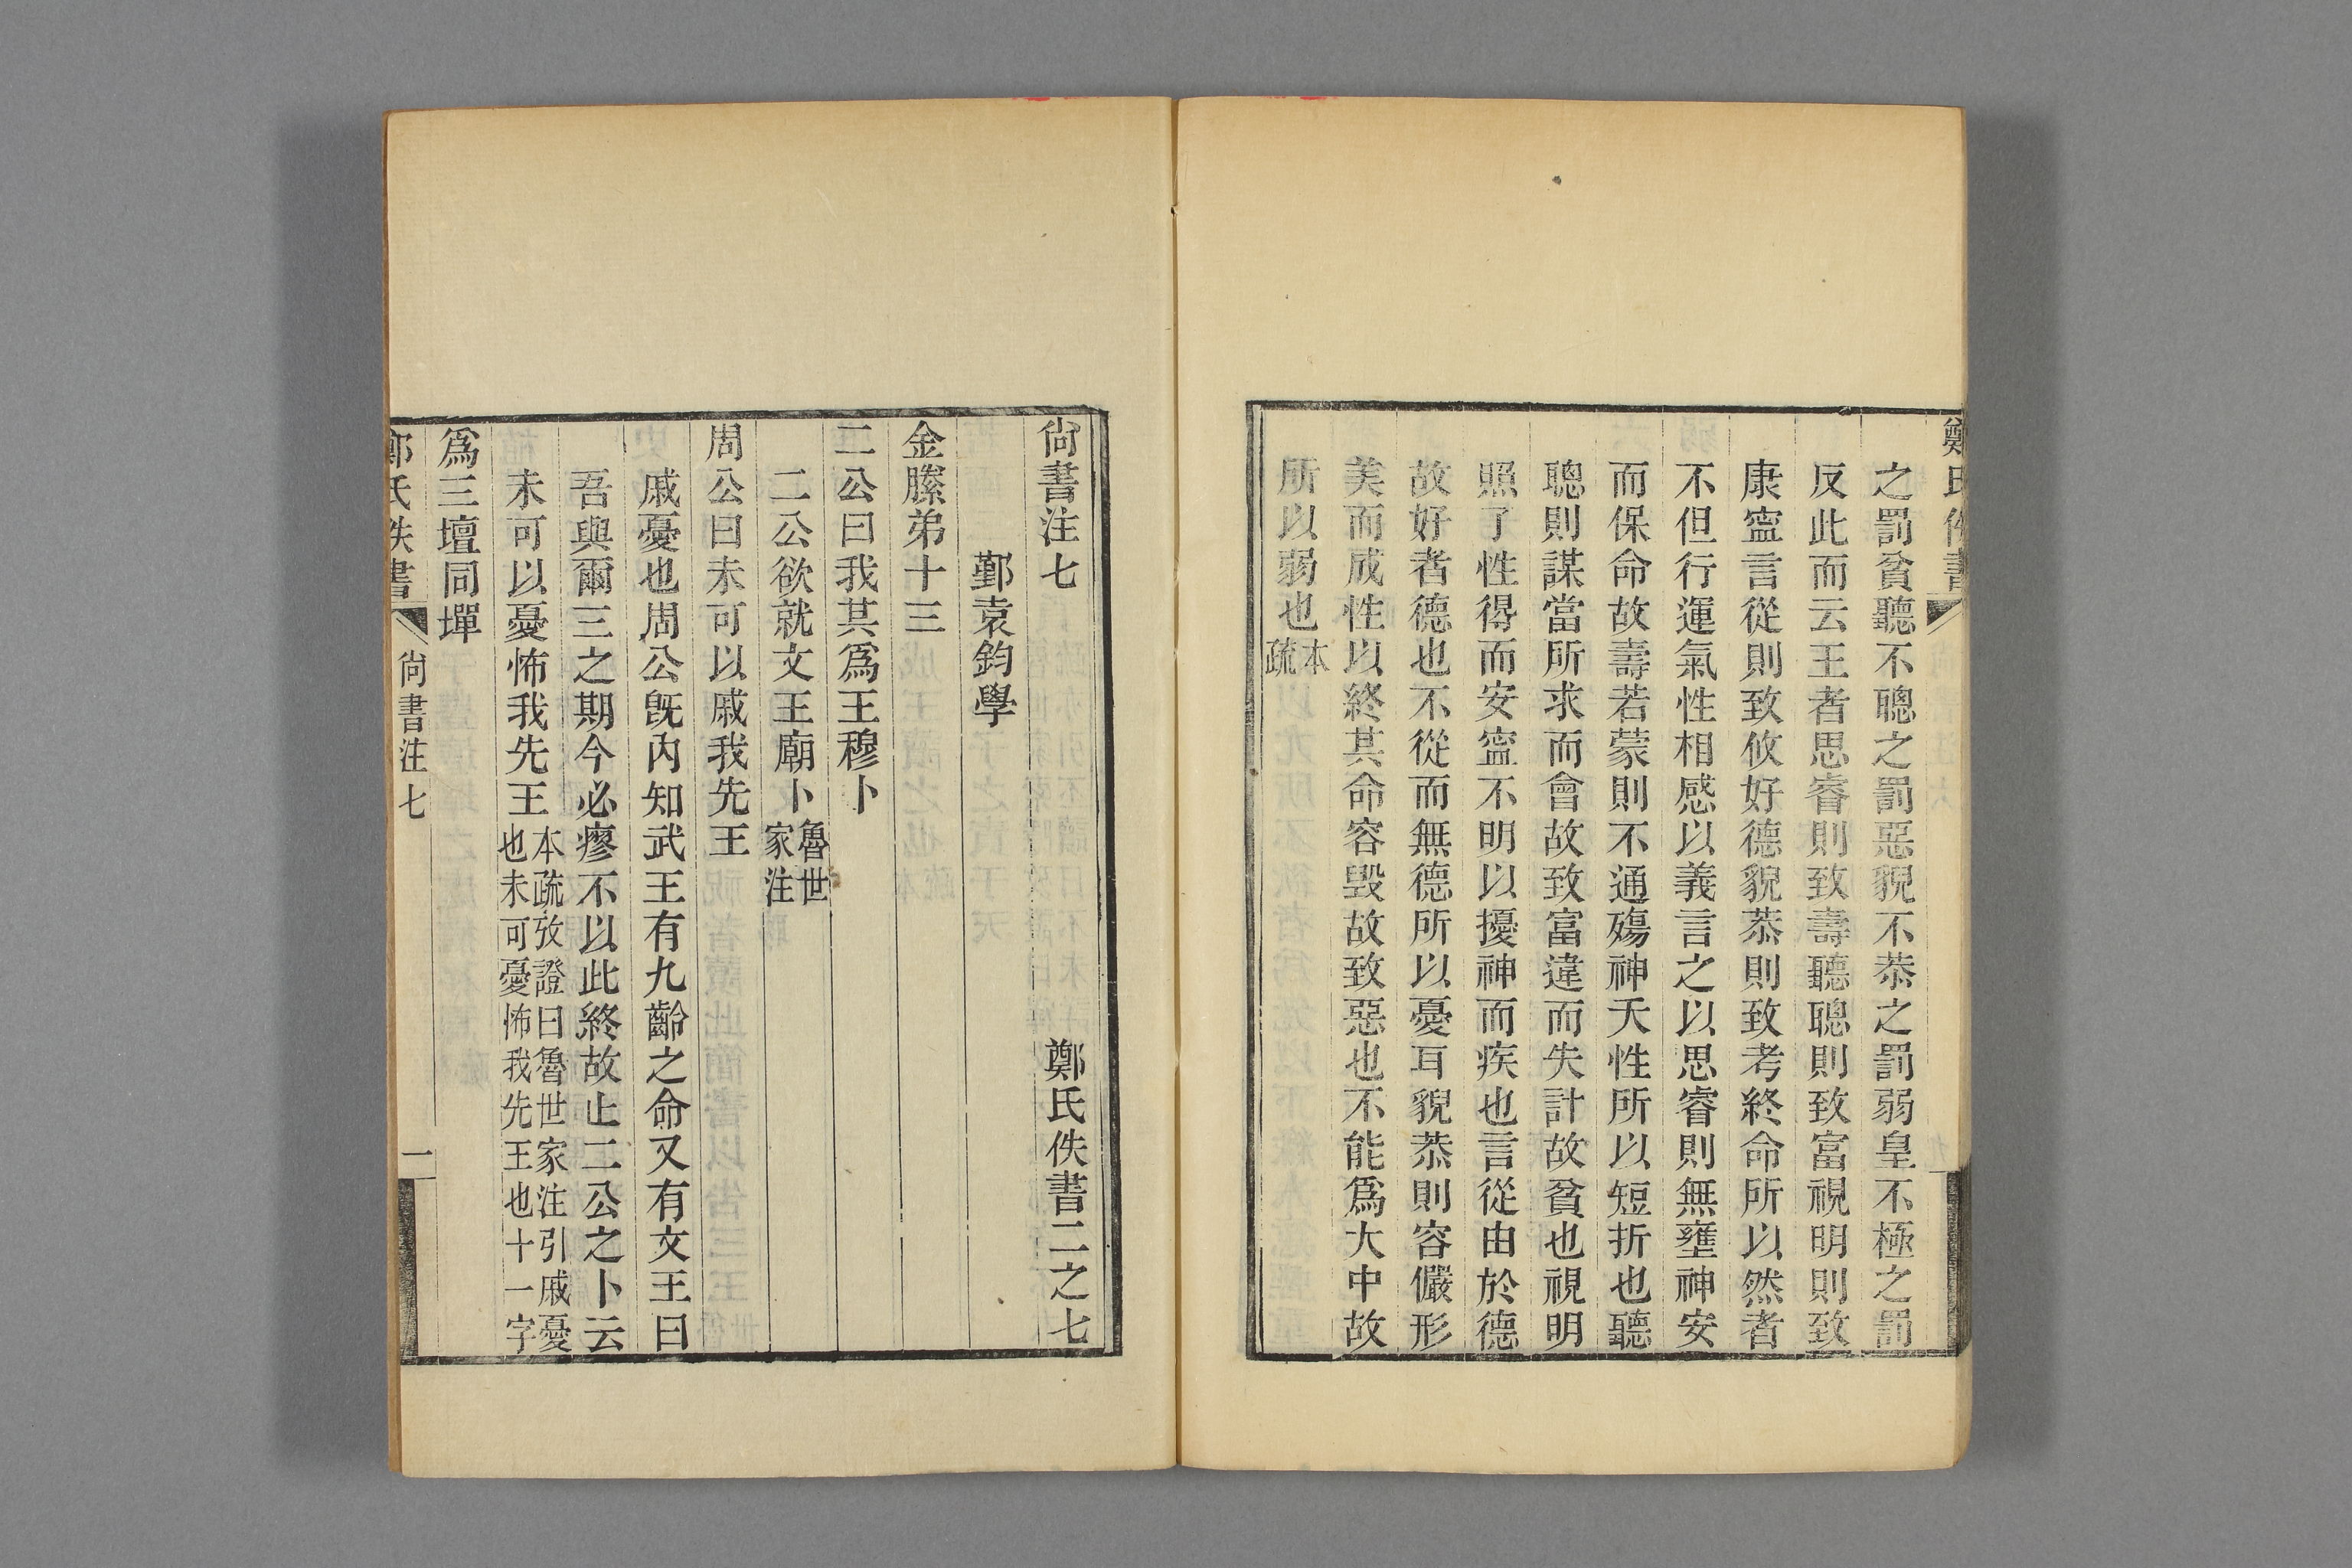 鄭氏佚書
之罰貧聽不聰之罰惡貌不恭之罰弱皇不極之罰
反此而云王者思睿則致壽聽聰則致富視明則致
康寍言從則致攸好德貌恭則致考終命所以然者
不但行運氣性相感以義言之以思睿則無壅神安
而保命故壽若蒙則不通殤神夭性所以短折也聽
聰則謀當所求而會故致富違而失計故貧也視明
照了性得而安寍不明以擾神而疾也言從由於德
故好者德也不從而無德所以憂耳貌恭則容儼形
美而成性以終其命容毀故致惡也不能爲大中故
所以弱也本
疏
尙書注七 鄭氏佚書二之七
鄞袁鈞學
金縢弟十三
二公曰我其爲王穆卜
二公欲就文王廟卜魯世
家注
周公曰未可以戚我先王
戚憂也周公旣內知武王有九齡之命又有文王曰
吾與爾三之期今必瘳不以此終故止二公之卜云
未可以憂怖我先王本疏攷證曰魯世家注引戚憂
也未可憂怖我先王也十一字
爲三壇同墠
鄭氏佚書 尙書注七 一